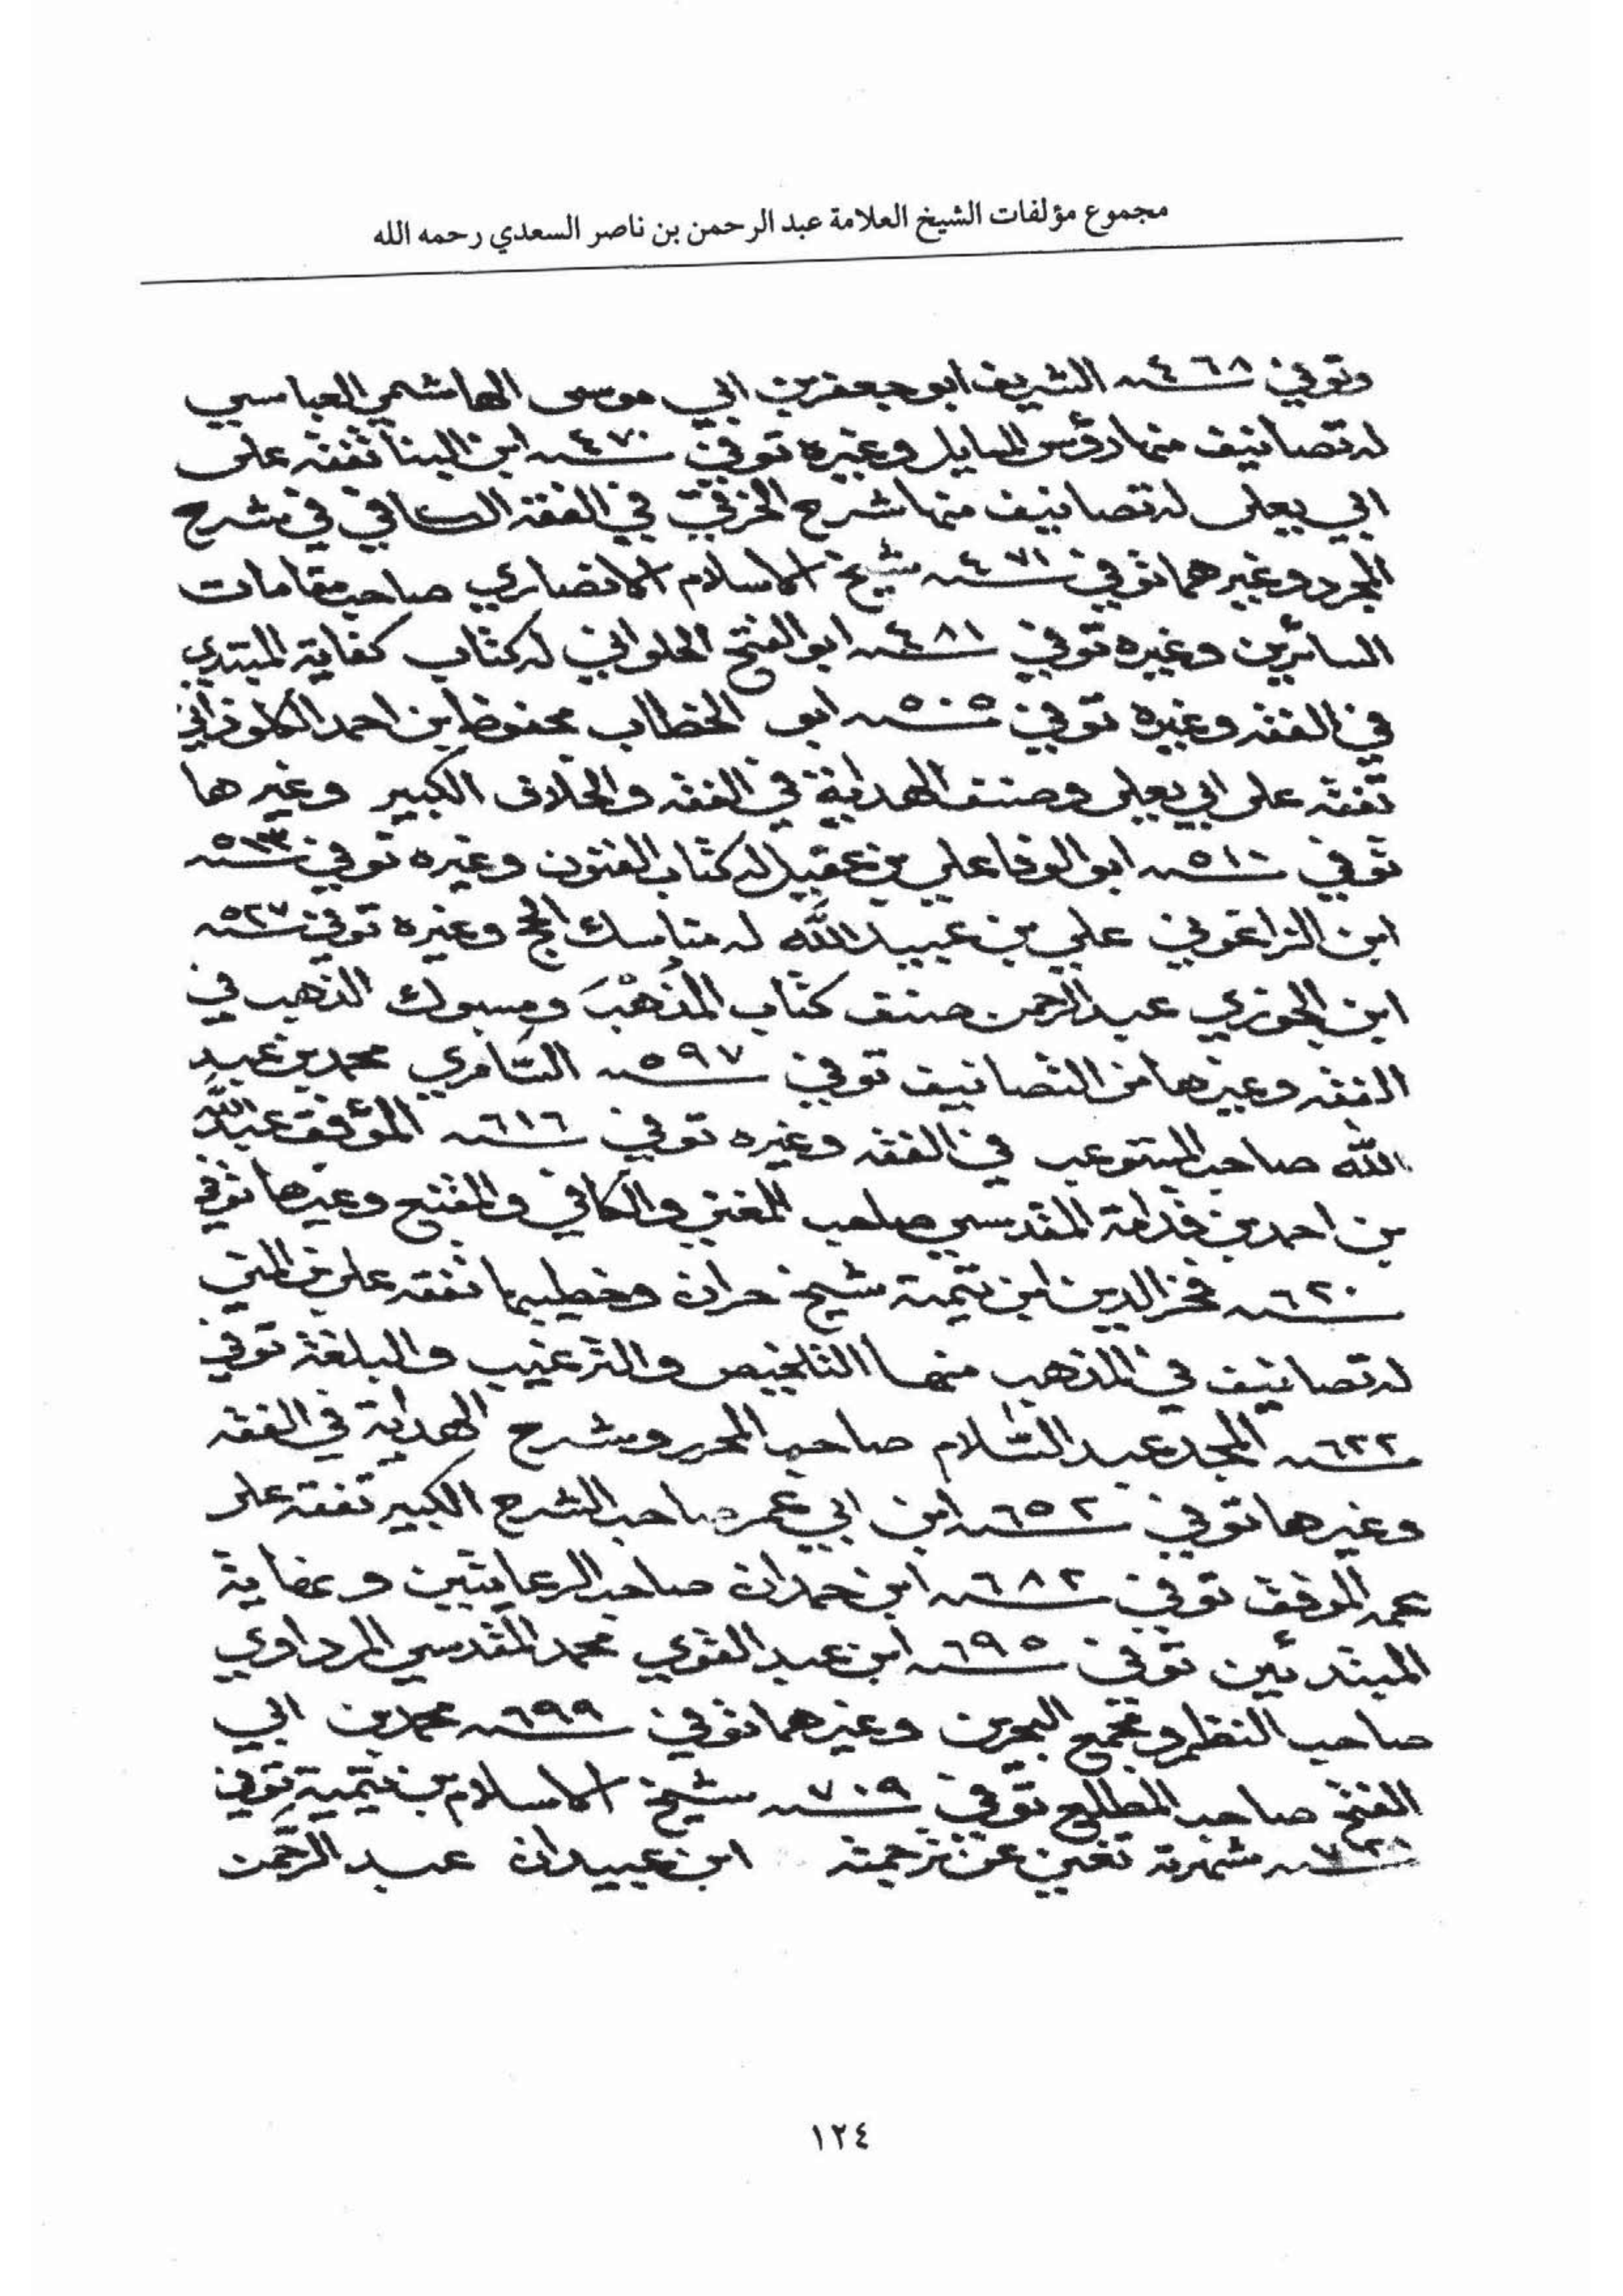 مجموع مؤلفات الشيخ العلامة عبد الرحمن بن ناصر السعدي رحمه الله
وتوفي ٤٦٨ سنه الشريف ابو جعفر بن ابي موسى الهاشمي العباسي
له تصانيف منها رؤس المسايل وغيره توفي ٤٧٠ سنه ابن البنا تفقه على
ابي يعلى له تصانيف منها شرح الخرقي في الفقه الكافي في شرح
المجرد وغيرهما توفي ٤٧١ سنه شيخ الاسلام الانصاري صاحب مقامات
السائرين وغيره توفي ٤٨١ سنه ابو الفتح الحلواني له كتاب كفاية المبتدي
في الفقه وغيره توفي ٥٠٥ سنه ابو الخطاب محفوظ بن احمد الكلوذاني
تفقه على ابي يعلى وصنف الهداية في الفقه والخلاف الكبير وغيرها
توفي ٥١٠ سنه ابو الوفا علي بن عقيل له كتاب الفنون وغيره توفي ٥١٣ سنه
ابن الزاغوني علي بن عبيد الله له مناسك الحج وغيره توفي ٥٢٧ سنه
ابن الجوزي عبد الرحمن صنف كتاب المُذْهَبَ ومسبوك الذهب في
الفقه وغيرها من التصانيف توفي ٥٩٧ سنه السَّامري محمد بن عبيد
الله صاحب المستوعب في الفقه وغيره توفي ٦١٦ سنه المؤفق عبد الله
بن احمد بن قدامة المقدسي صاحب المغني والكافي والمقنع وغيرها توفي
٦٢٠ سنه فخر الدين ابن تيمية شيخ حران وخطيبها تفقه على بن المني
له تصانيف في المذهب منها التلخيص والترغيب والبلغة توفي
٦٢٢ سنه المجد عبد السَّلام صاحب المحرر وشرح الهداية في الفقه
وغيرها توفي ٦٥٢ سنه ابن ابي عمر صاحب الشرح الكبير تفقه على
عمه الموفق توفي ٦٨٢ سنه ابن حمدان صاحب الرعايتين وغاية
المبتدئين توفي ٦٩٥ سنه ابن عبد القوي محمد المقدسي المرداوي
صاحب النظم ومجمع البحرين وغيرهما توفي ٦٩٩ سنه محمد بن ابي
الفتح صاحب المطلع توفي ٧٠٩ سنه شيخ الاسلام بن تيمية توفي
٧٢٨ سنه شهرته تغني عن ترجمته ابن عبيدان عبد الرَّحمن
١٢٤